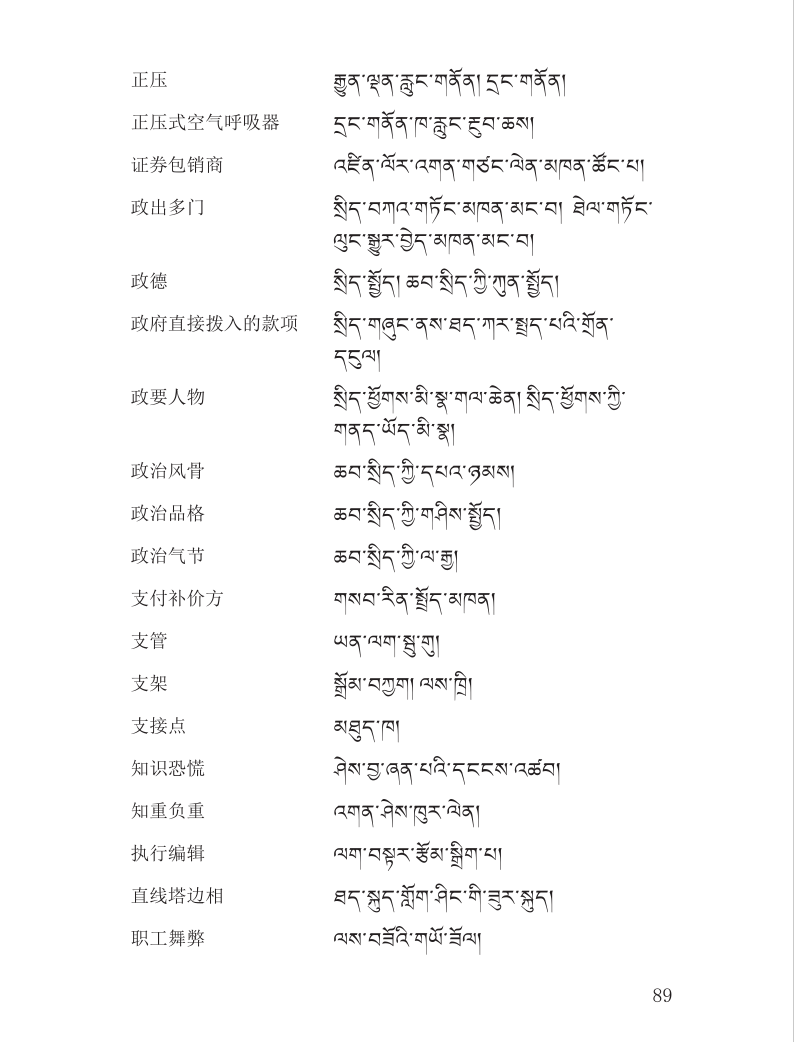 正压 རྒྱུན་ལྡན་རླུང་གནོན། དྲང་གནོན།
正压式空气呼吸器 དྲང་གནོན་ཁ་རླུང་རྔུབ་ཆས།
证券包销商 འཛིན་ལོར་འགན་གཙང་ལེན་མཁན་ཚོང་པ།
政出多门 སྲིད་བཀའ་གཏོང་མཁན་མང་བ། ཐེལ་གཏོང་
ལུང་སྒྱུར་བྱེད་མཁན་མང་བ།
政德 སྲིད་སྤྱོད། ཆབ་སྲིད་ཀྱི་ཀུན་སྤྱོད།
政府直接拨入的款项 སྲིད་གཞུང་ནས་ཐད་ཀར་སྤྲད་པའི་གྲོན་
དངུལ།
政要人物 སྲིད་ཕྱོགས་མི་སྣ་གལ་ཆེན། སྲིད་ཕྱོགས་ཀྱི་
གནད་ཡོད་མི་སྣ།
政治风骨 ཆབ་སྲིད་ཀྱི་དཔའ་ཉམས།
政治品格 ཆབ་སྲིད་ཀྱི་གཤིས་སྤྱོད།
政治气节 ཆབ་སྲིད་ཀྱི་ལ་རྒྱ།
支付补价方 གསབ་རིན་སྤྲོད་མཁན།
支管 ཡན་ལག་སྦུ་གུ།
支架 སྒྲོམ་བཀྱག ལས་ཁྲི།
支接点 མཐུད་ཁ།
知识恐慌 ཤེས་བྱ་ཞན་པའི་དངངས་འཚབ།
知重负重 འགན་ཤེས་ཁུར་ལེན།
执行编辑 ལག་བསྟར་རྩོམ་སྒྲིག་པ།
直线塔边相 ཐད་སྐུད་གློག་ཤིང་གི་ཟུར་སྐུད།
职工舞弊 ལས་བཟོའི་གཡོ་ཟོལ།
89